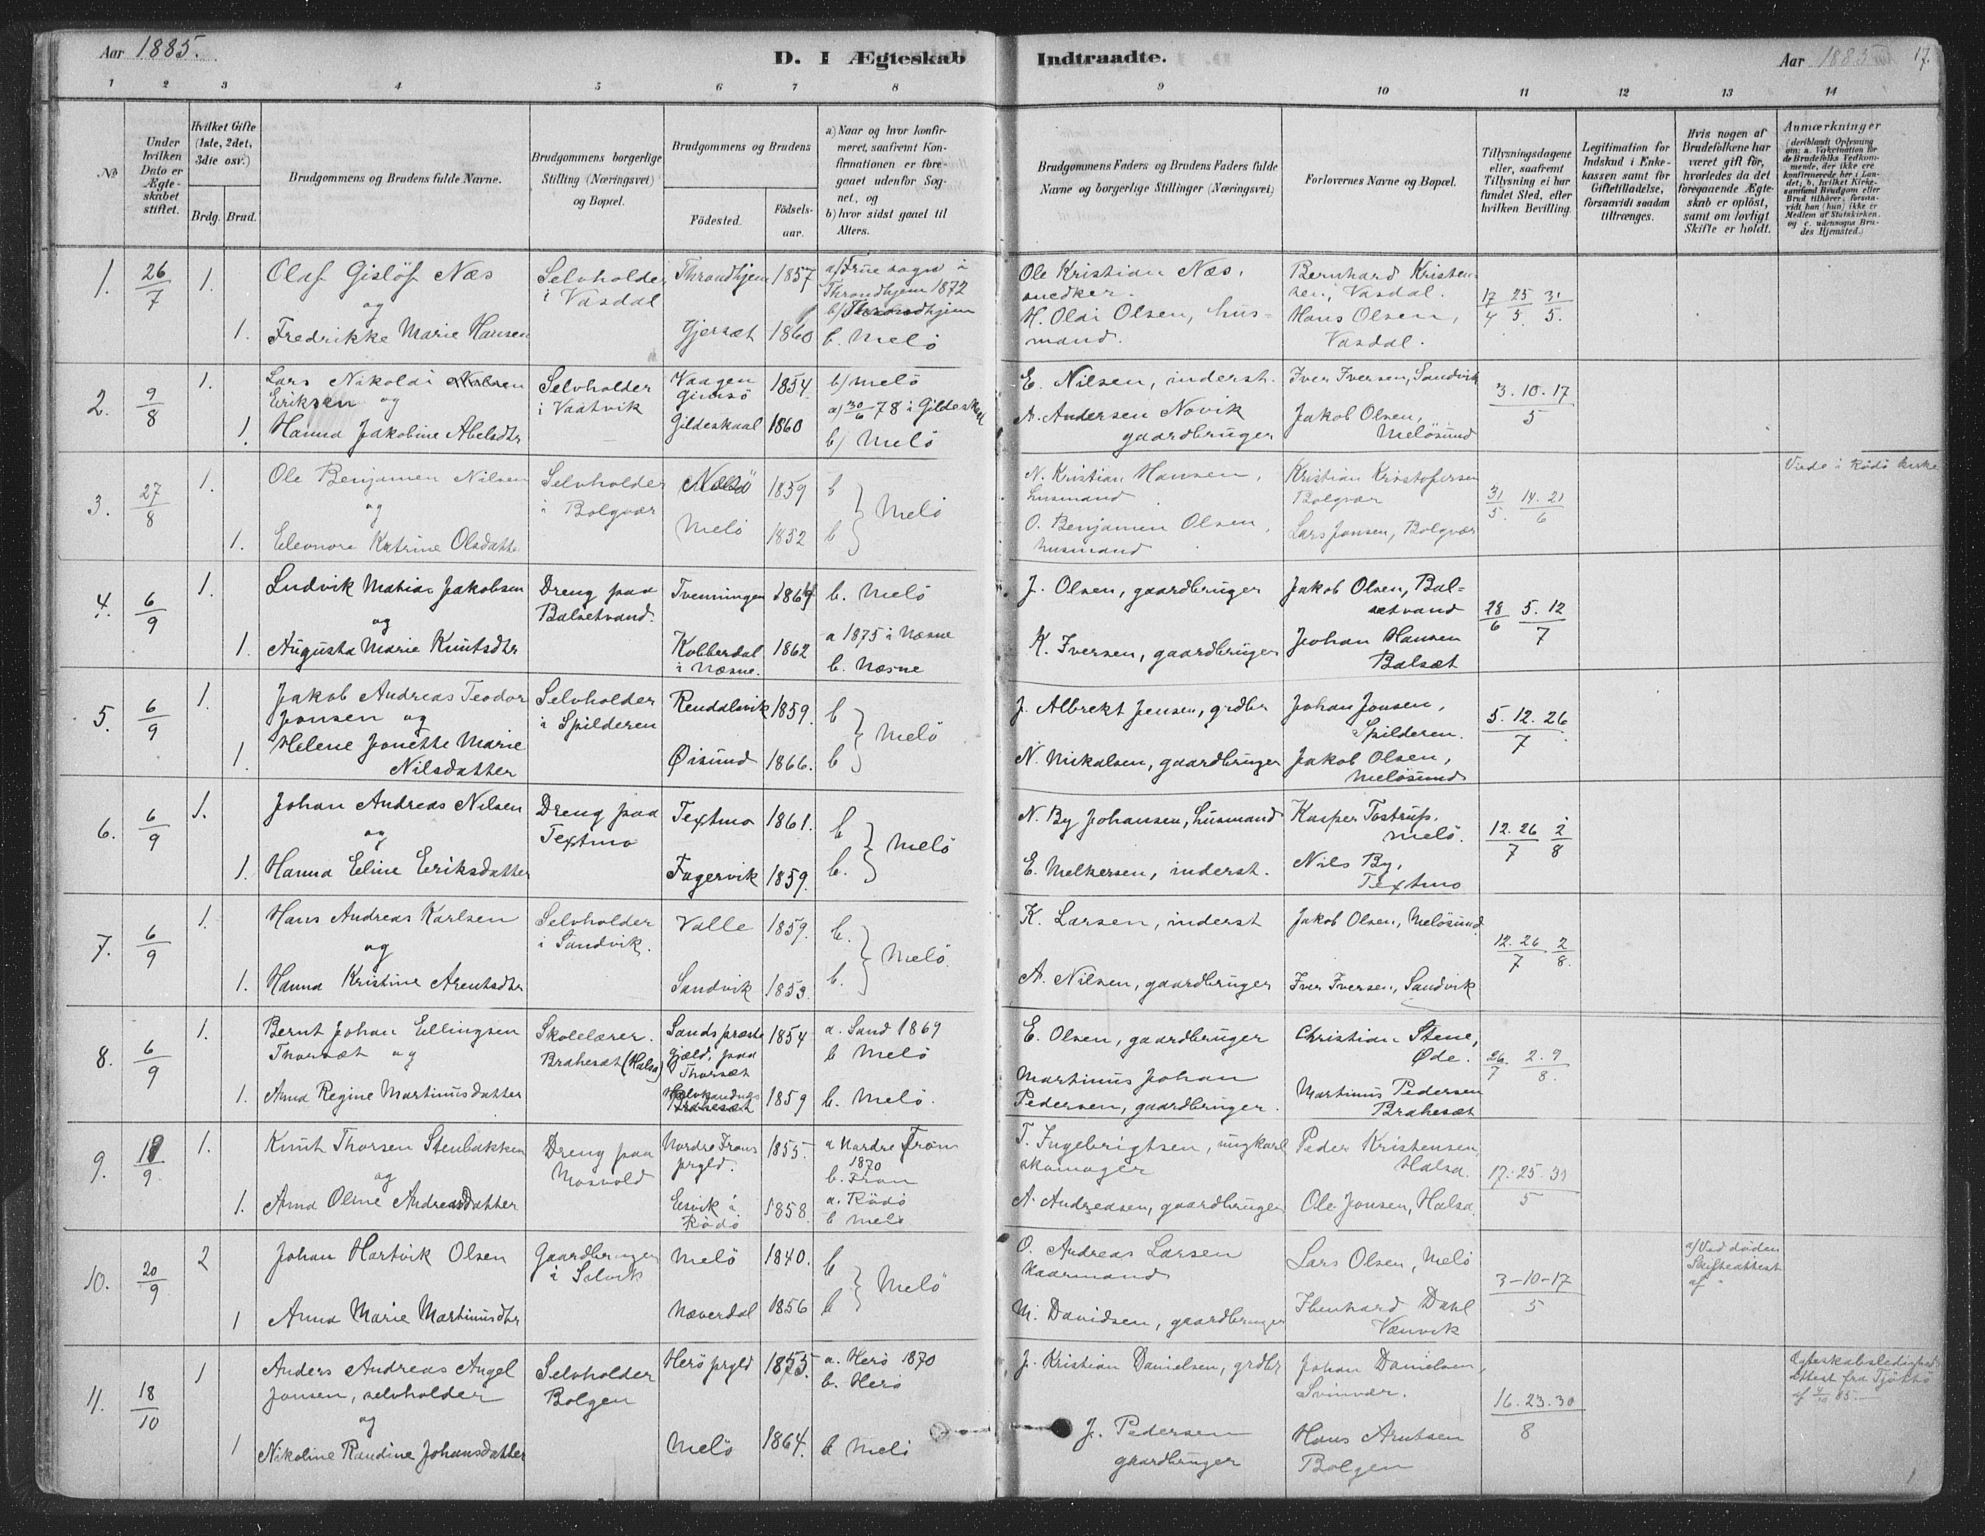 Aar 1885.
D. I Ægteskab Indtraadte.
Aar 1885
17.
1 2 3 4 5 6 7 8 9 10 11 12 13 14
No
Under hvilken Dato er Ægteskabet stiftet.
Hvilket Gifte (1ste, 2det, 3die osv.)
Brdg. Brud.
Brudgommens og Brudens fulde Navne.
Brudgommens borgerlige Stilling (Næringsvei) og Bopæl.
Brudgommens og Brudens
Födested. Födsels-aar.
a) Naar og hvor konfirmeret, saafremt Konfirmationen er foregaaet udenfor Sognet, og
b) hvor sidst gaaet til Alters.
Brudgommens Faders og Brudens Faders fulde Navne og borgerlige Stillinger (Næringsvei)
Forlovernes Navne og Bopæl.
Tillysningsdagene eller, saafremt Tillysning ei har fundet Sted, efter hvilken Bevilling.
Legitimation for Indskud i Enkekassen samt for Giftetilladelse, forsaavidt saadan tiltrænges.
Hvis nogen af Brudefolkene har været gift för, hvorledes da det foregaaende Ægteskab er oplöst, samt om lovligt Skifte er holdt.
Anmærkninger
1. 26/7 1. Olaf Gislöf Næs Selvholder Throndhjem 1857 a/ Frue sogn i Ole Kristian Næs, Bernhard Kristen-
og i Vasdal Throndhjem 1872 snedker. sen, Vasdal. 17/4 25/5 31/5.
b/ Throndhjem
1. Fredrikke Marie Hansen Gjersæt 1860 b. Melö H. Oldi Olsen, husmand. Hans Olsen, Vasdal.
2. 9/8 1. Lars Nikolai Nilsen Selvholder Vaagen 1854. b/ Melö E. Nilsen, inderst. Iver Iversen, Sandvik 3. 10. 17/5
Eriksen og i Vaatvik Gimsö a) 30/6 78 i Gildeskaal
1. Hanna Jakobine Abelsdtr Gildeskaal 1860 b/ Melö A. Andersen Novik gaardbruger Jakob Olsen, Melösund
3. 27/8 1. Ole Benjamen Nilsen Selvholder Melö 1859 b N. Kristian Hansen, husmand Kristian Kristofersen Bolgvær 31/5. 14. 21/6 Viede i Rödö kirke
og i Bolgvær Melö
1. Eleonore Katrine Olsdatter Melö 1852 b O. Benjamin Olsen, husmand Lars Jensen, Bolgvær
4. 6/9 1. Ludvik Mathias Jakobsen Dreng paa Tvenningen 1864 b. Melö J. Olsen, gaardbruger Jakob Olsen, Balsetvand 28/6 5. 12/7
og Balsetvand.
1. Augusta Marie Knutsdtr Kobberdal i Næsne. 1862 a 1875 i Næsne b. Næsne K. Iversen, gaardbruger Johan Hansen Balsæt
5. 6/9 1. Jakob Andreas Teodor Selvholder Rendalsvik 1859. b J. Albrekt Jensen, grdbr Johan Jonsen, Spilderen. 5. 12. 26/7
Jonsen og i Spilderen Melö
1. Helene Jonette Marie Nilsdatter Öisund 1866. b N. Mikalsen, gaardbruger Jakob Olsen, Melösund
6. 6/9 1. Johan Andreas Nilsen Dreng paa Textmo 1861. b N. By Johansen, husmand Kasper Tostrup, Melö. 12. 26/7 2/8
og Textmo Melö
1. Hanna Eline Eriksdatter Fagervik 1859. b. E. Melkersen, inderst. Nils By, Textmo
7. 6/9 1. Hans Andreas Karlsen Selvholder Valle 1859. b. K. Larsen, inderst Jakob Olsen, Melösund 12. 26/7 2/8.
og i Sandvik. Melö.
1. Hanna Kristine Arentsdtr Sandvik 1853. b. A. Nilsen, gaardbruger Iver Iversen, Sandvik
8. 6/9 1. Bernt Johan Ellingsen Skolelærer. Sands præste- 1854 a. Sand 1869 E. Olsen, gaardbruger Christian Stene, Øde. 26/7 2. 9/8.
Thorsæt og Brahesæt (Halsa) gjæld, paa Thorsæt b Melö
1. Anna Regine Martinusdatter Brahesæt 1859 b. Melö. Martinus Johan Pedersen, gaardbruger. Martinus Pedersen Brahesæt
9. /9. 1. Knut Thorsen Stenbakken Dreng paa Nordre Frons prgld. 1855. a Nordre Fron 1870 b. Fron T. Ingebrigtsen, ungkarl skomager Peder Kristensen, Halsa. 17. 25. 31/5
og Mosvold
1. Anna Oline Andreasdatter Esvik i Rödö 1858. a. Rödö b Melö A. Andreasen, gaardbruger Ole Jonsen, Halsa
10. 20/9 2 Johan Hartvik Olsen Gaardbruger i Selvik Melö 1840. b O. Andreas Larsen kaarmand Lars Olsen, Melö 3-10-17/5 a/ Ved döden Skifteattest af "
Melö
1 Anna Marie Martinusdtr Næverdal 1856 b M. Davidsen, gaardbruger Ibenhard Dahl Vænvik
11. 18/10 1 Anders Andreas Angel Selvholder Herö prgld 1855. a. Herö 1870 J. Kristian Danielsen, grdbr Johan Danielsen, Svinvær. 16. 23. 30/8 Ægteskabsledigheds-
Jonsen, selvholder Bolgen b. Herö attest fra Tjöttö
og
1 Nikoline Randine Johansdatter Melö 1864. b Melö J. Pedersen gaardbruger Hans Arntsen Bolgen